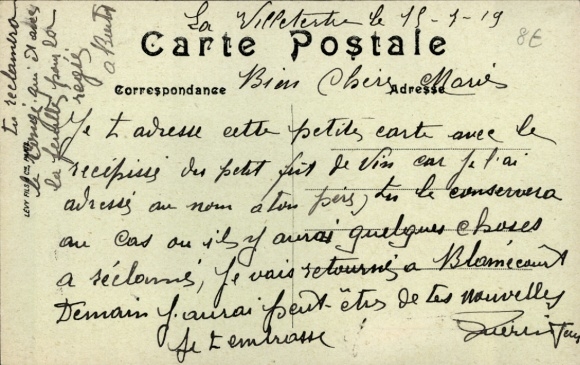 La Villetertre le 15-7-19
8€
Carte Postale
Bien Chère Marie
Correspondance
Adresse
Je t adresse cette petite carte avec le
récipissé du petit fut de vin car je l'ai
adressé au nom a ton père, tu le conservera
au cas ou il y aurai quelques choses
a réclamé, je vais retourné a Blamécourt
Demain j'aurai peut-être de tes nouvelles
Je t embrasse
tu réclamera
le congé qui est avec
la feuille pour la
régie